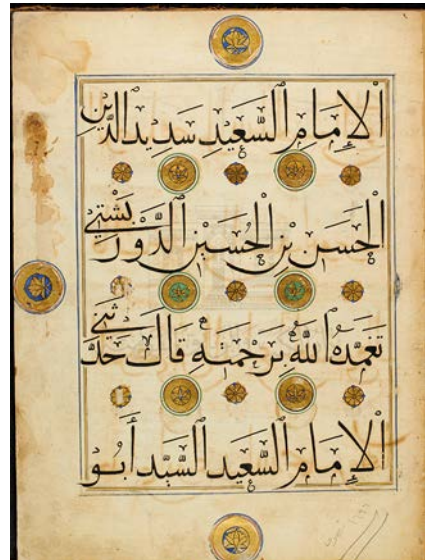 الإمام السعيد سديد الدين
الحسن بن الحسين الدوربشتي
تغمده الله برحمته قال حدثني
الإمام السعيد السيد أبو